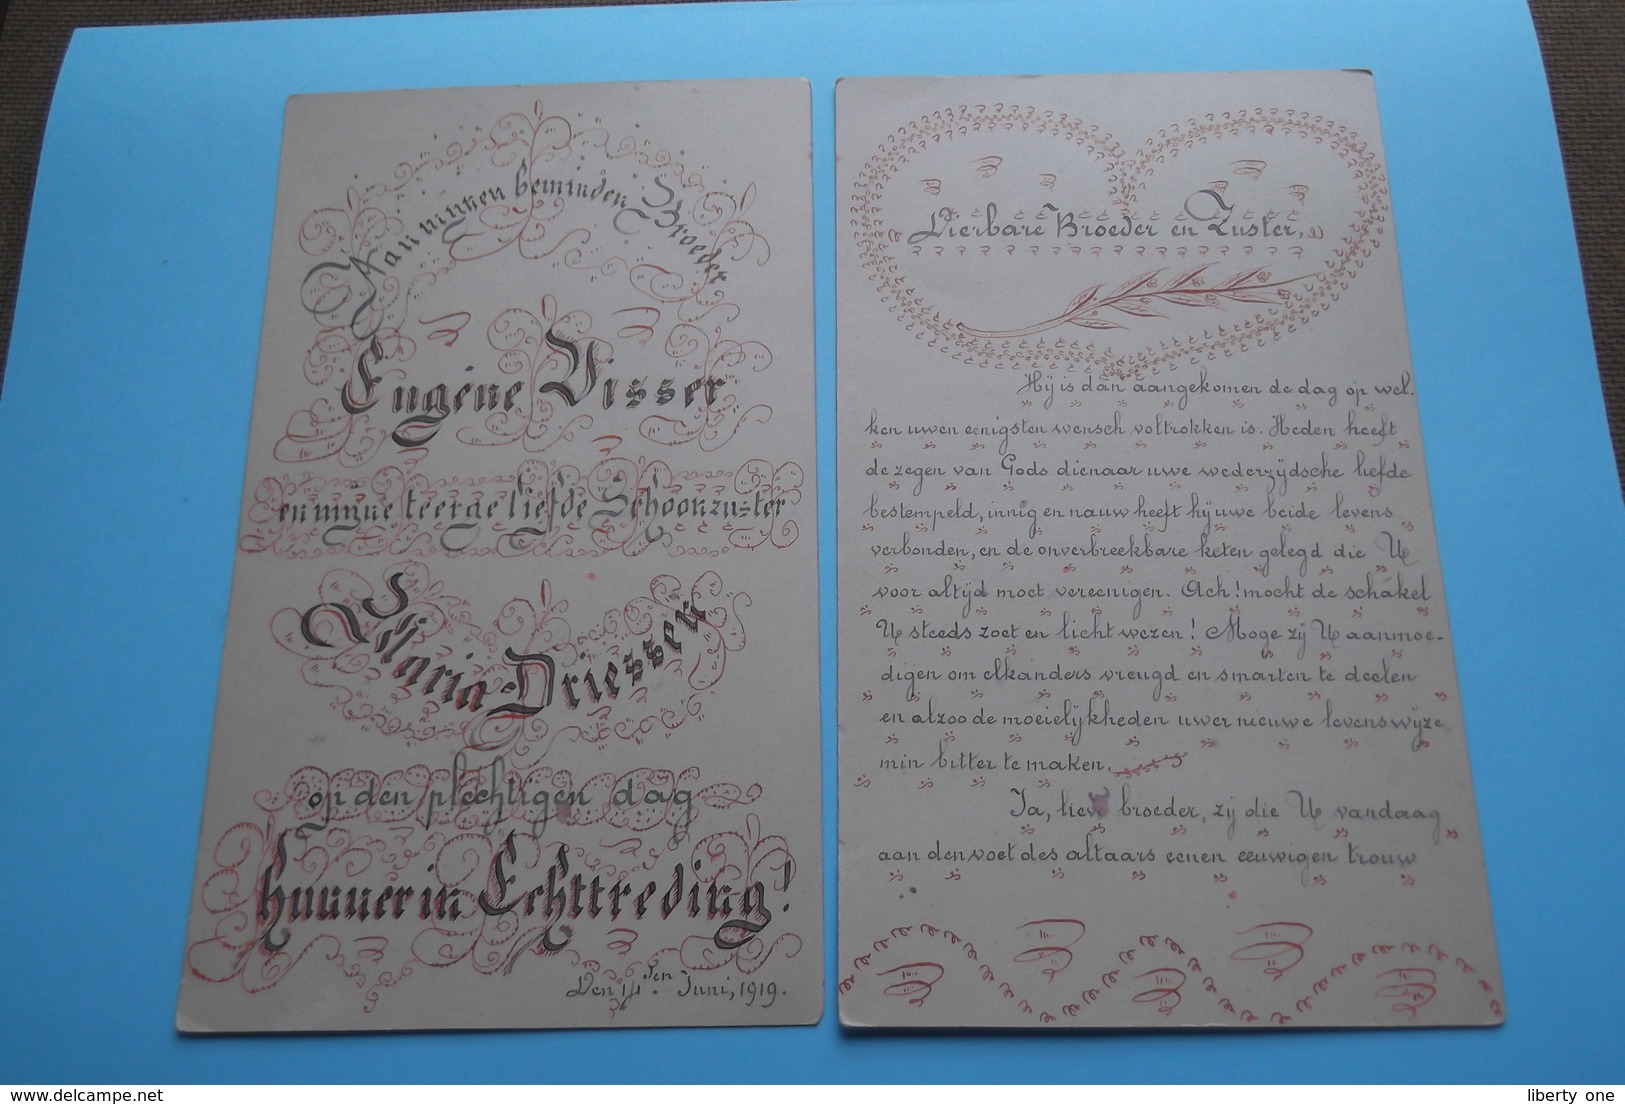 Aan mijnen beminden Broeder
Eugéne Visser
en mijne teergeliefde Schoonzuster
Maria Driessen
op den plechtigen dag
hunner in Echttreding!
Den 14.den Juni, 1919.
Dierbare Broeder en Zuster,
Hij is dan aangekomen de dag op wel-
ken uwen eenigsten wensch voltrokken is. Heden heeft
de zegen van Gods dienaar uwe wederzijdsche liefde
bestempeld, innig en nauw heeft hij uwe beide levens
verbonden, en de onverbreekbare keten gelegd die U
voor altijd moet vereenigen. Ach! mocht de schakel
U steeds zoet en licht wezen! Moge zij U aanmoe-
digen om elkanders vreugd en smarten te deelen
en alzoo de moeielijkheden uwer nieuwe levenswijze
min bitter te maken.
Ja, lieve broeder, zij die U vandaag
aan den voet des altaars eenen eeuwigen trouw
liberty one